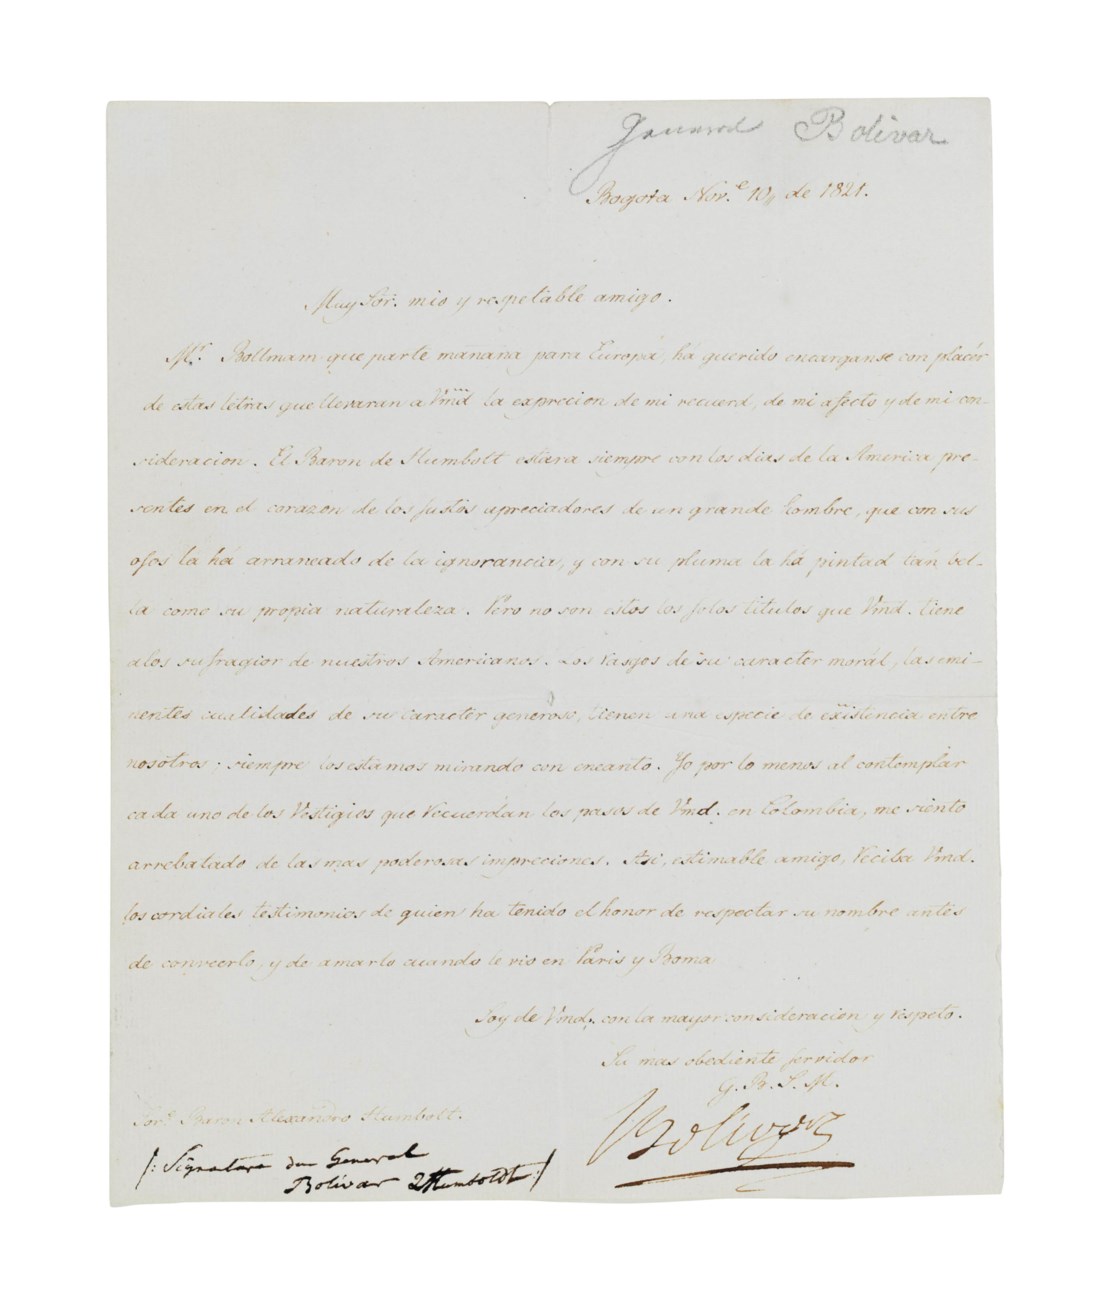 General Bolivar
Bogota Nov.e 10,, de 1821.
Muy Sor. mio y respetable amigo.
Mr. Bollmam que parte mañana para Europa, há querido encarganse con placér
de estas letras que llevaran a Vmd la exprecion de mi recuerd, de mi afecto y de mi con-
sideracion. El Baron de Humbolt estara siempre con los dias de la America pre-
sentes en el corazon de los justos apreciadores de un grande hombre, que con sus
ojos la há arrancado de la ignorancia, y con su pluma la há pintad tán bel-
la como su propia naturaleza. Pero no son estos los solos titulos que Vmd. tiene
a los sufragior de nuestros Americanos. Los rasgos de su caracter morál, las emi-
nentes cualidades de su caracter generoso, tienen una especie de existencia entre
nosotros; siempre los estamos mirando con encanto. Yo por lo menos al contemplar
cada uno de los Vestigios que recuerdan los pasos de Vmd. en Colombia, me siento
arrebatado de las mas poderosas impreciones. Asi, estimable amigo, reciba Vmd.
los cordiales testimonios de quien ha tenido el honor de respectar su nombre antes
de conocerlo, y de amarlo cuando le vio en Paris y Roma
Soy de Vmd. con la mayor consideracion y respeto.
Su mas obediente servidor
Q. B. S. M.
Bolivar
Sor. Baron Alexandro Humbolt.
/: Signature du General
Bolivar Humboldt :/